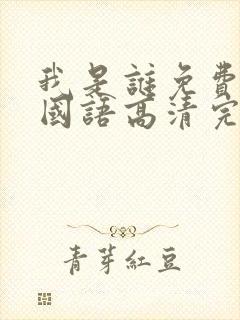 我是謎免費
國語高清完
青芽紅豆